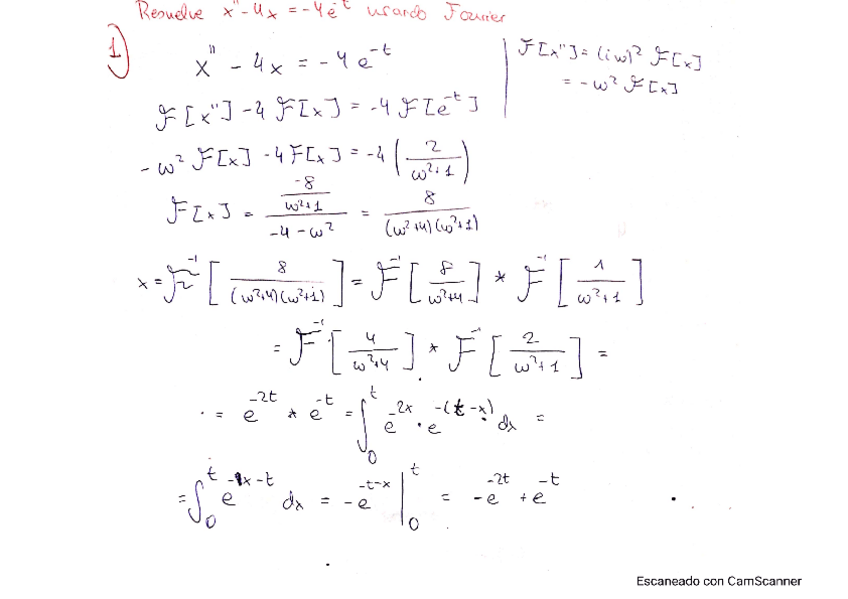 Resuelve x'' - 4x = -4e^-t usando Fourier
1) x'' - 4x = -4 e^-t
F[x''] = (iω)² F[x]
= -ω² F[x]
F[x''] - 4 F[x] = -4 F[e^-t]
-ω² F[x] - 4 F[x] = -4 (2/(ω²+1))
F[x] = (-8/(ω²+1))/(-4-ω²) = 8/((ω²+4)(ω²+1))
x = F^-1 [8/((ω²+4)(ω²+1))] = F^-1 [8/(ω²+4)] * F^-1 [1/(ω²+1)]
= F^-1 [4/(ω²+4)] * F^-1 [2/(ω²+1)] =
= e^-2t * e^-t = ∫_0^t e^-2x · e^-(t-x) dx =
= ∫_0^t e^(-x-t) dx = -e^(-t-x) |_0^t = -e^-2t + e^-t
Escaneado con CamScanner